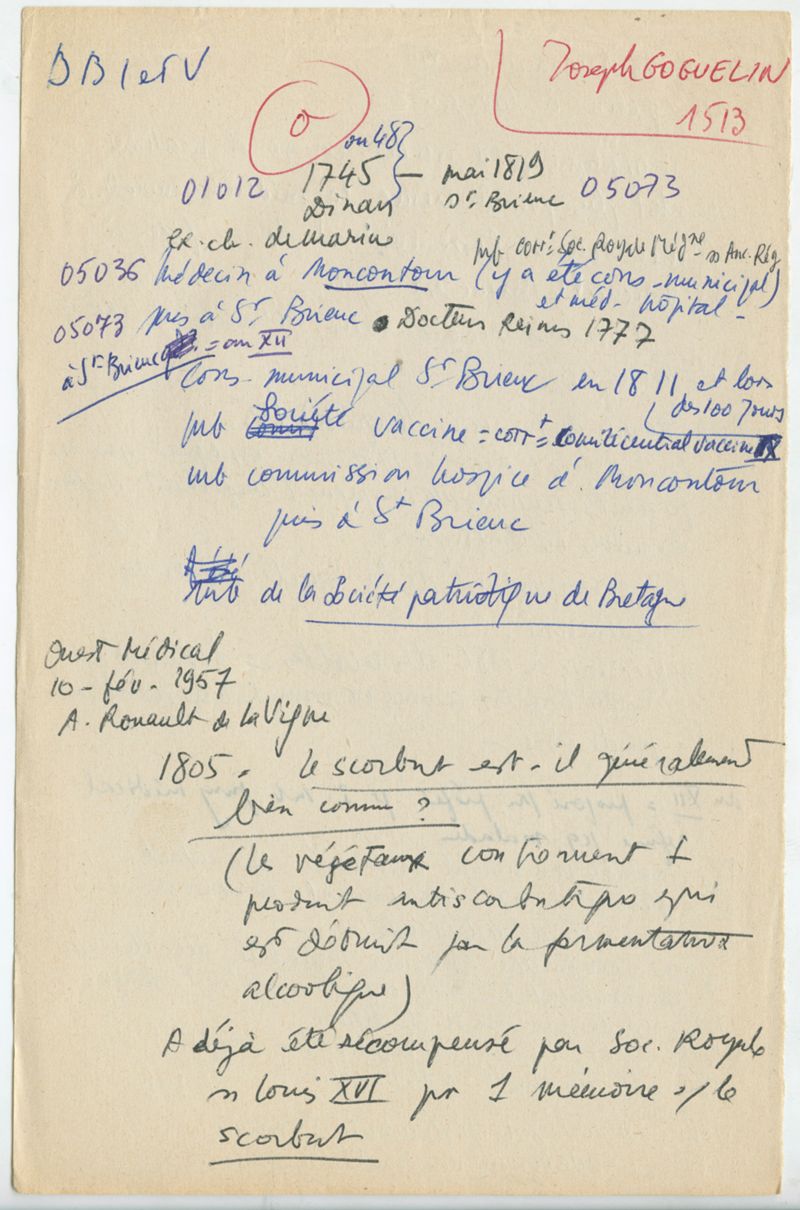 BB 1 et V
Joseph GOGUELIN
1513
0
ou 48?
01012 1745 — mai 1819 05073
Dinan St Brieuc
ex. ch. de marine
mb corrt Soc. Royale Méd. s/s Anc. Rég
05036 Médecin à Moncontour (y a été cons. municipal)
et méd. hôpital -
05073 puis à St Brieuc Docteur Reims 1777
à St Brieuc = an XII
Cons. municipal St Brieuc en 1811 et lors
des 100 Jours
mb Société vaccine = corrt = Comité central vaccine
mb commission hospice de Moncontour
puis à St Brieuc
de la Société patriotique de Bretagne
Ouest Médical
10 - fév. 1957
A. Rouault de la Vigne
1805 - le scorbut est-il généralement
bien connu ?
(les végétaux contiennent 1
produit antiscorbutique qui
est détruit par la fermentation
alcoolique)
A déjà été récompensé par Soc. Royale
s/s Louis XVI pr 1 mémoire s/ le
scorbut